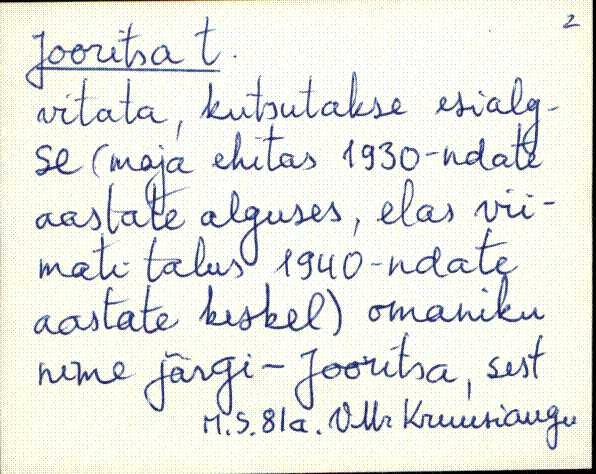 2
Jooritsa t.
vitata, kutsutakse esialg-
se (maja ehitas 1930-ndate
aastate alguses, elas vii-
mati talus 1940-ndate
aastate keskel) omaniku
nime järgi - Jooritsa, sest
M.S. 81a. VMr Kruusiaugu